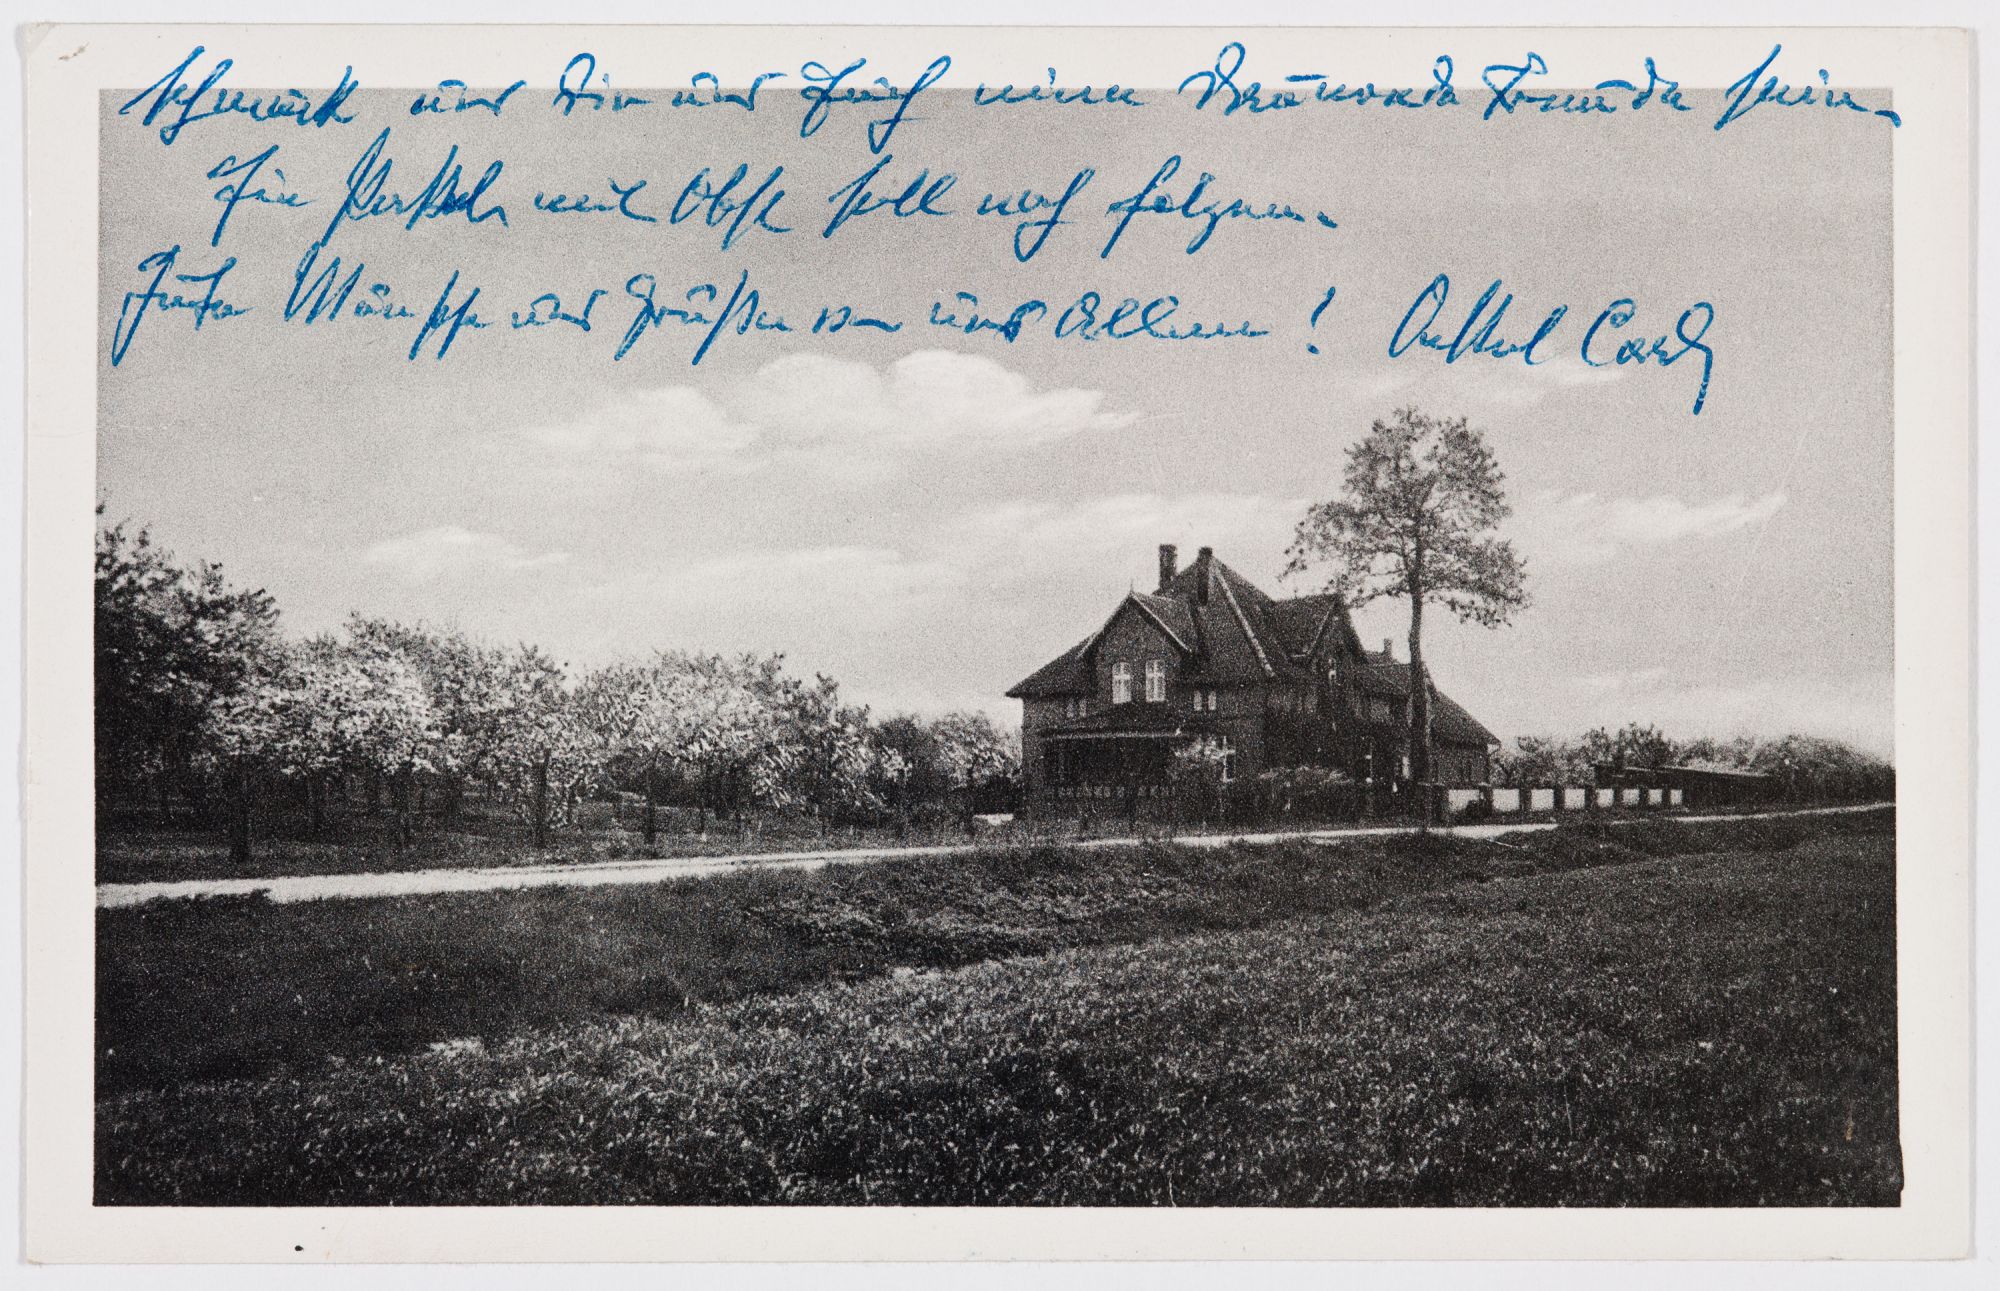 schmückt uns Dir und Euch eine dauernde Freude sein.
Ein Packel mit Obst soll noch folgen.
Gute Wünsche und Grüße von uns Allen! Onkel Carl